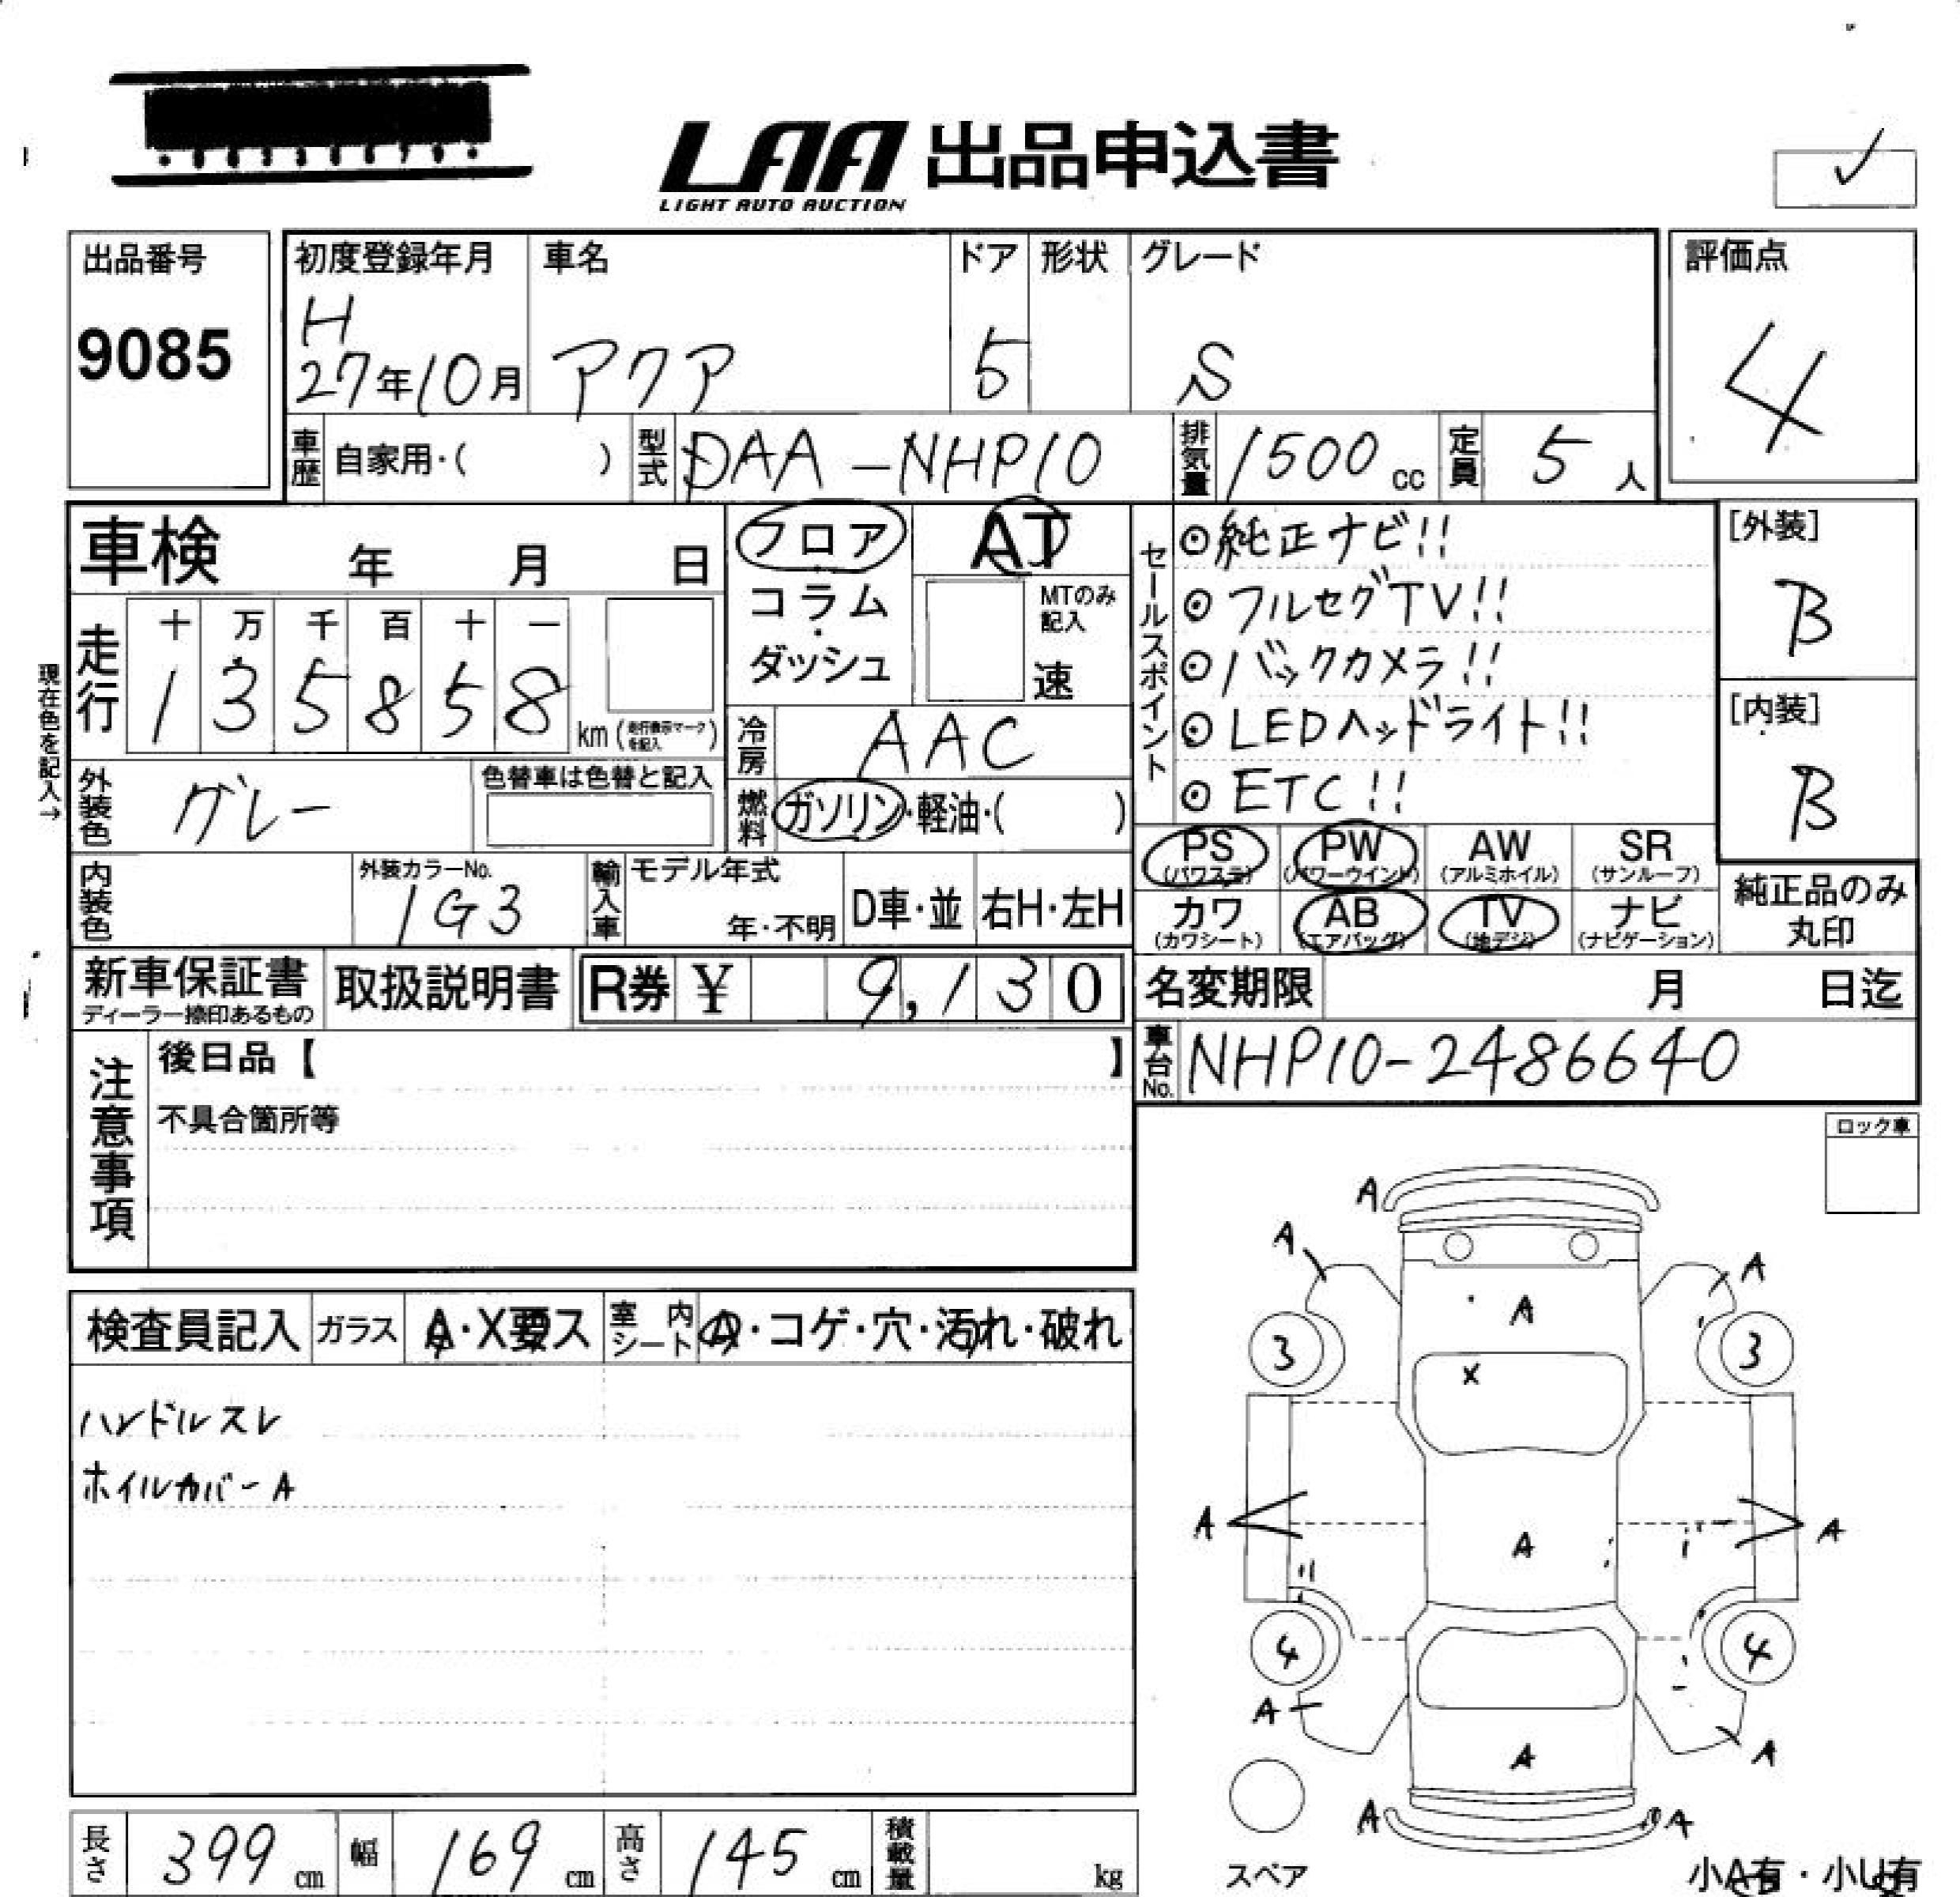 LAA 出品申込書
LIGHT AUTO AUCTION
✓
出品番号
9085
初度登録年月
H
27年10月
車名
アクア
ドア
5
形状
グレード
S
評価点
4
車歴 自家用・( )
型式 DAA-NHP10
排気量 1500 cc
定員 5 人
車検 年 月 日
フロア・コラム・ダッシュ
AT
MTのみ記入
速
セールスポイント
⊙純正ナビ!!
⊙フルセグTV!!
⊙バックカメラ!!
⊙LEDヘッドライト!!
⊙ETC!!
[外装]
B
[内装]
B
現在色を記入→
走行
十 万 千 百 十 一
1 3 5 8 5 8
km (走行表示マークを記入)
冷房 AAC
外装色 グレー
色替車は色替と記入
燃料 ガソリン・軽油・( )
PS (パワステ)
PW (パワーウインド)
AW (アルミホイル)
SR (サンルーフ)
カワ (カワシート)
AB (エアバッグ)
TV (地デジ)
ナビ (ナビゲーション)
純正品のみ
丸印
内装色
外装カラーNo.
1G3
輸入車
モデル年式
年・不明
D車・並
右H・左H
新車保証書
ディーラー捺印あるもの
取扱説明書
R券 ¥ 9,130
名変期限 月 日迄
車台No. NHP10-2486640
注意事項
後日品【 】
不具合箇所等
ロック車
検査員記入
ガラス
A・X要ス
室内シート
A・コゲ・穴・汚れ・破れ
ハンドルスレ
ホイルカバーA
A
A
A
A
3
3
X
A
A
A
4
4
A
A
A
A
A
スペア
小A有・小U有
長さ 399 cm
幅 169 cm
高さ 145 cm
積載量 kg